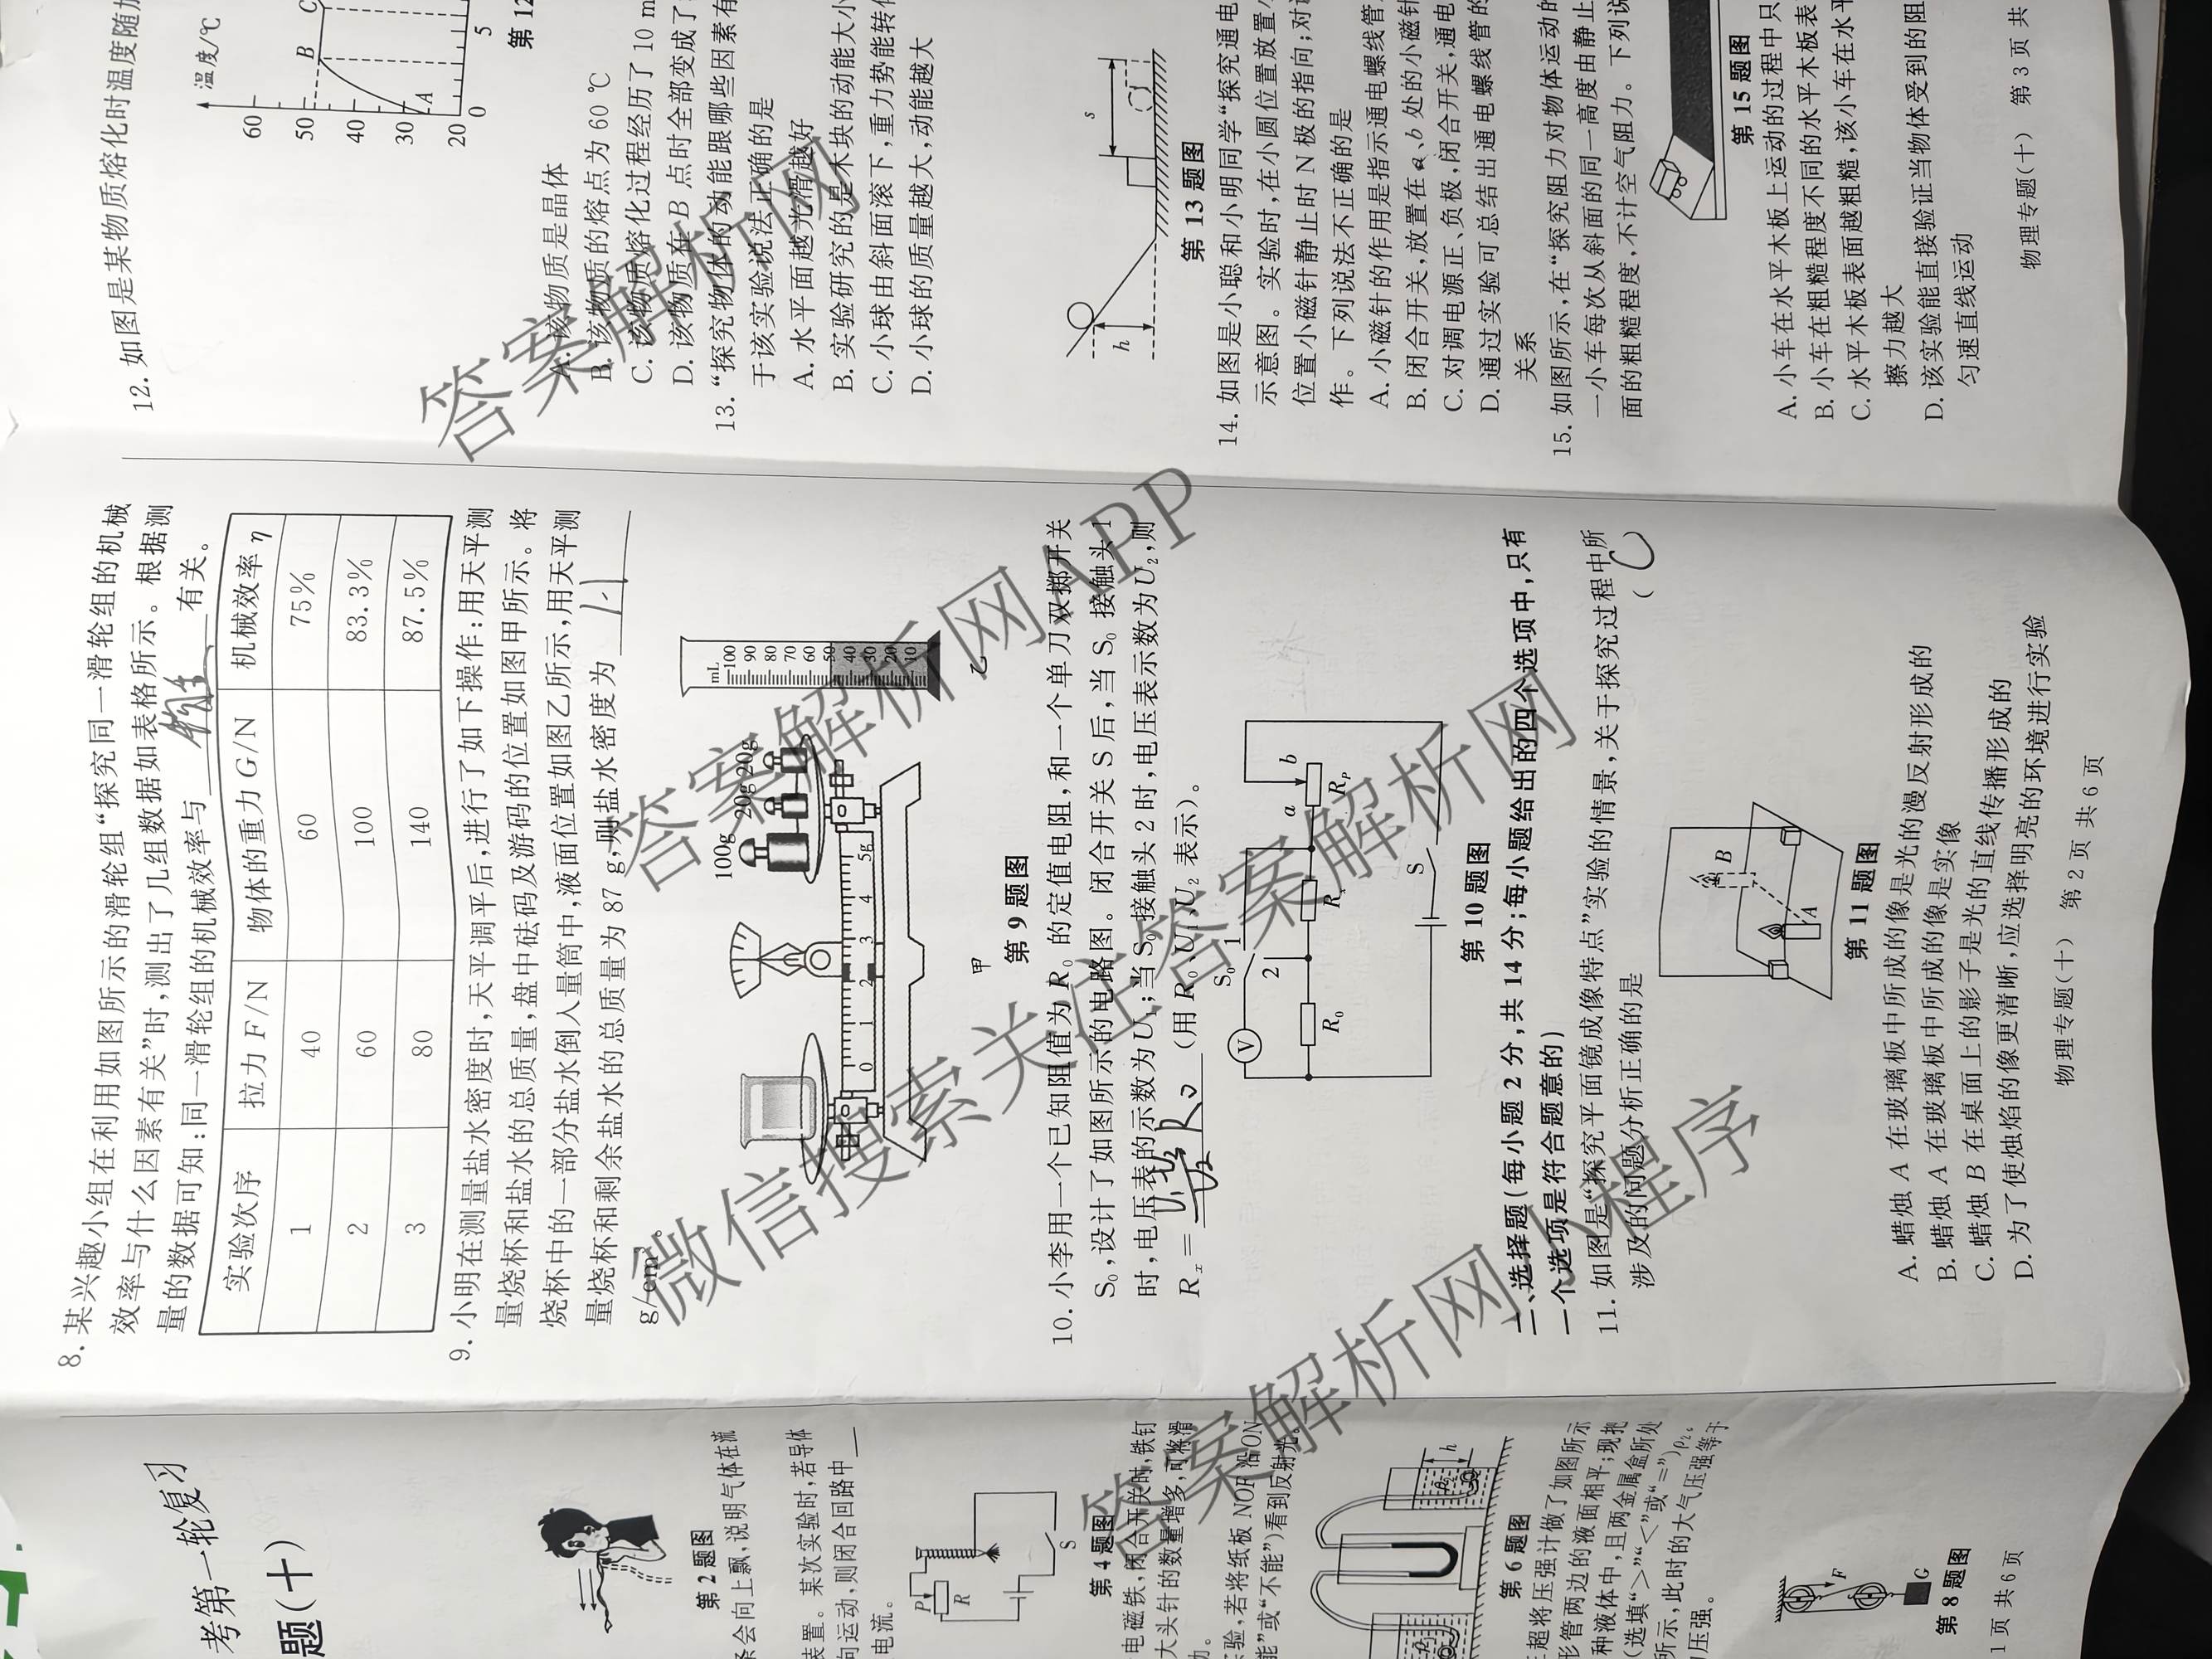 考第一轮复习
题(十)
第2题图
条会向上飘,说明气体在流
装置。某次实验时,若导体
向运动,则闭合回路中
电流。
P
R
S
第4题图
电磁铁,闭合开关时,铁钉
大头针的数量增多,可将滑
动。
实验,若将纸板 NOF 沿 ON
能”或“不能”)看到反射光。
h
第6题图
超将压强计做了如图所示
形管两边的液面相平;现把
种液体中,且两金属盒所处
(选填“>”“<”或“=”)ρ₂。
所示,此时的大气压强等于
压强。
F
G
第8题图
1页 共6页
8. 某兴趣小组在利用如图所示的滑轮组“探究同一滑轮组的机械
效率与什么因素有关”时,测出了几组数据如表格所示。根据测
量的数据可知:同一滑轮组的机械效率与 有关。
实验次序 拉力 F/N 物体的重力 G/N 机械效率 η
1 40 60 75%
2 60 100 83.3%
3 80 140 87.5%
9. 小明在测量盐水密度时,天平调平后,进行了如下操作:用天平测
量烧杯和盐水的总质量,盘中砝码及游码的位置如图甲所示。将
烧杯中的一部分盐水倒入量筒中,液面位置如图乙所示,用天平测
量烧杯和剩余盐水的总质量为 87 g,则盐水密度为 1.1
g/cm³。
100g 20g 20g
0 1 2 3 4 5g
mL
100
90
80
70
60
50
40
30
20
10
甲
乙
第9题图
10. 小李用一个已知阻值为 R₀ 的定值电阻,和一个单刀双掷开关
S₀,设计了如图所示的电路图。闭合开关 S 后,当 S₀ 接触头 1
时,电压表的示数为 U₁;当 S₀ 接触头 2 时,电压表示数为 U₂,则
Rₓ= (用 R₀、U₁、U₂ 表示)。
V
S₀ 1
2
R₀ Rₓ a b
R_P
S
第10题图
二、选择题(每小题 2 分,共 14 分;每小题给出的四个选项中,只有
一个选项是符合题意的)
11. 如图是“探究平面镜成像特点”实验的情景,关于探究过程中所
涉及的问题分析正确的是 ( C
A
B
第11题图
A. 蜡烛 A 在玻璃板中所成的像是光的漫反射形成的
B. 蜡烛 A 在玻璃板中所成的像是实像
C. 蜡烛 B 在桌面上的影子是光的直线传播形成的
D. 为了使烛焰的像更清晰,应选择明亮的环境进行实验
物理专题(十) 第2页 共6页
12. 如图是某物质熔化时温度随加
温度/℃
60
50
40
30
20
0
5
A
B
C
第12
A. 该物质是晶体
B. 该物质的熔点为 60 ℃
C. 该物质熔化过程经历了 10 m
D. 该物质在 B 点时全部变成了
13. “探究物体的动能跟哪些因素有
于该实验说法正确的是
A. 水平面越光滑越好
B. 实验研究的是木块的动能大小
C. 小球由斜面滚下,重力势能转
D. 小球的质量越大,动能越大
h
s
第13题图
14. 如图是小聪和小明同学“探究通电
示意图。实验时,在小圆位置放置小
位置小磁针静止时 N 极的指向;对
作。下列说法不正确的是
A. 小磁针的作用是指示通电螺线管
B. 闭合开关,放置在 a、b 处的小磁针
C. 对调电源正、负极,闭合开关,通电
D. 通过实验可总结出通电螺线管的
关系
15. 如图所示,在“探究阻力对物体运动的
一小车每次从斜面的同一高度由静止
面的粗糙程度,不计空气阻力。下列说
第15题图
A. 小车在水平木板上运动的过程中只
B. 小车在粗糙程度不同的水平木板表
C. 水平木板表面越粗糙,该小车在水平
擦力越大
D. 该实验能直接验证当物体受到的阻
匀速直线运动
物理专题(十) 第3页 共
答案解析网
答案解析网APP
微信搜索关注答案解析网
答案解析网小程序